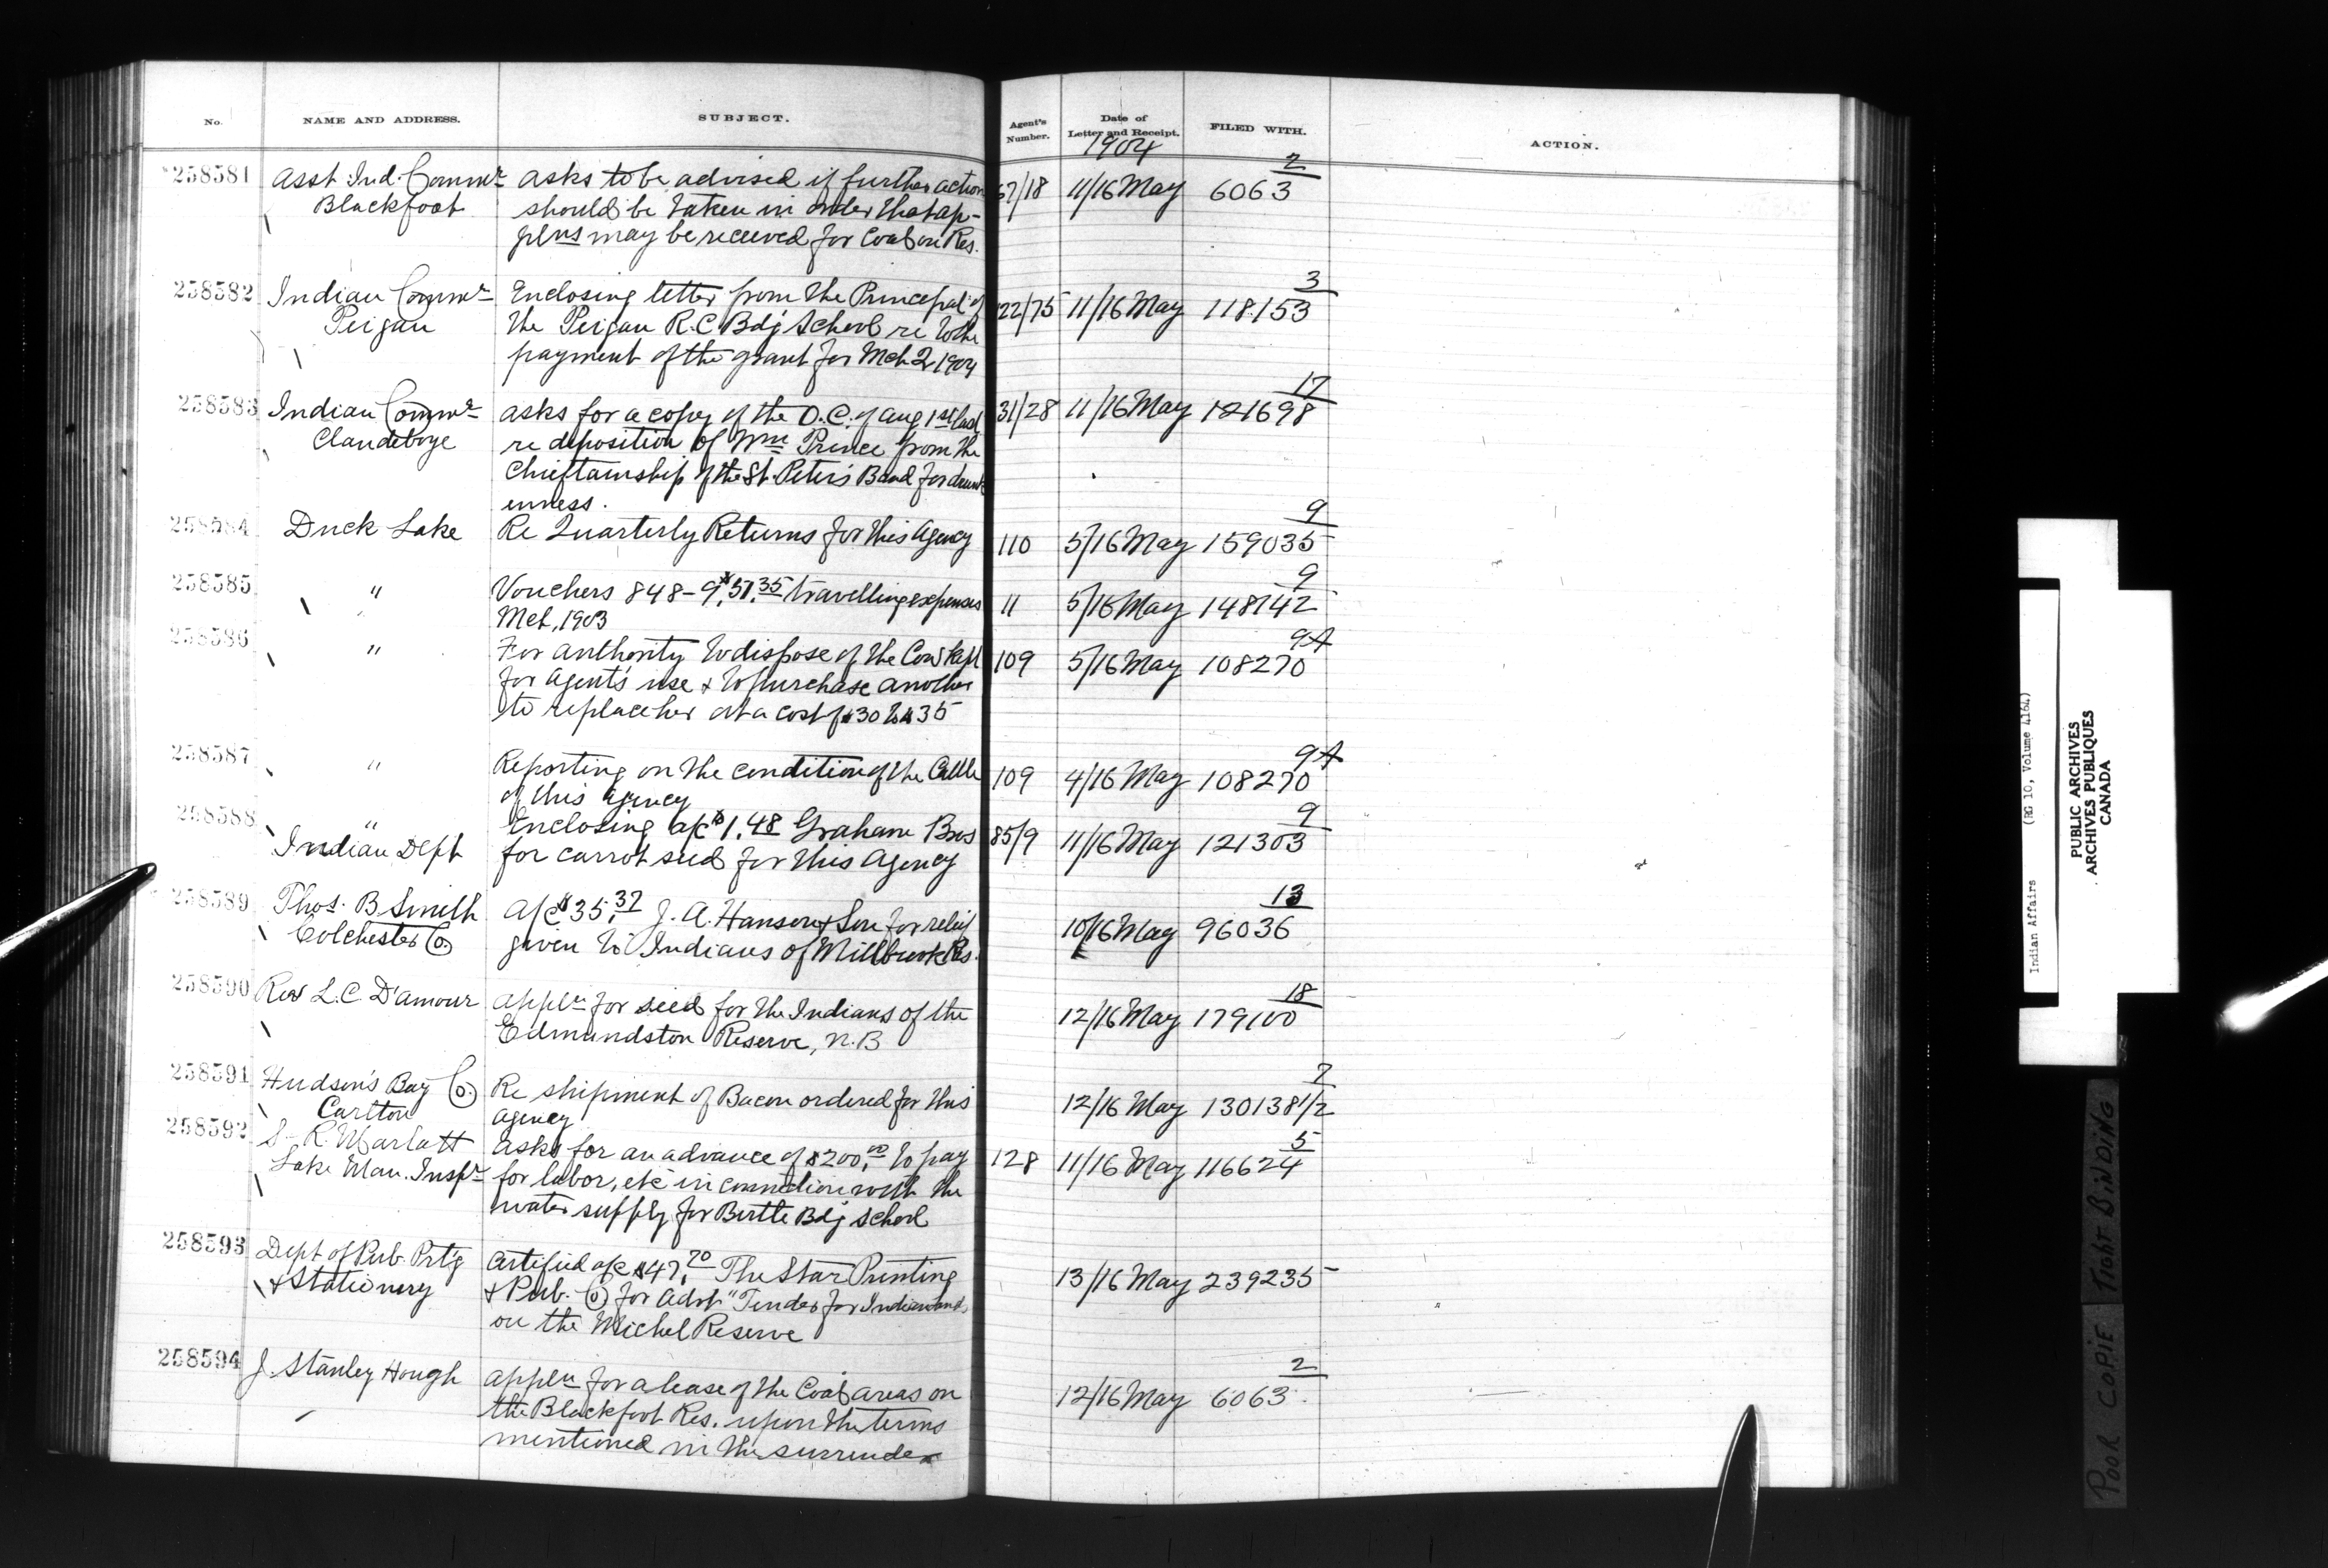 No. NAME AND ADDRESS. SUBJECT. Agent's Number. Date of Letter and Receipt. FILED WITH. ACTION.
1904
258581 Asst Ind. Commr asks to be advised if further action 67/18 11/16 May 6063 2
Blackfoot should be taken in order that ap-
plns may be received for Coal on Res.
258582 Indian Commr Enclosing letter from the Principal of 22/75 11/16 May 118153 3
Peigan the Peigan R.C Bdg School re to the
payment of the grant for Mch 2r 1904
258583 Indian Commr asks for a copy of the O.C. of Aug 1st last 31/28 11/16 May 121698 17
Clandeboye re deposition of Wm Prince from the
Chieftainship of the St. Peter's Band for drunk
enness.
258584 Duck Lake Re Quarterly Returns for this Agency 110 5/16 May 159035 9
258585 " Vouchers 848-9, $51.35 travelling expenses 11 5/16 May 148742 9
Mch, 1903
258586 " For authority to dispose of the Cow kept 109 5/16 May 108270 9A
for Agent's use & to purchase another
to replace her at a cost of $30 to $35
258587 " Reporting on the condition of the Cattle 109 4/16 May 108270 9A
of this agency
258588 " Enclosing a/c $1.48 Graham Bros 85/9 11/16 May 121303 9
Indian Dept for carrot seed for this Agency
258589 Thos. B Smith a/c $35.37 J. A. Hanson & Son for relief 10/16 May 96036 13
Colchester Co. given to Indians of Millbrook Res.
258590 Rev L.C. D'amour appln for seed for the Indians of the 12/16 May 179100 18
Edmundston Reserve, N.B
258591 Hudson's Bay Co. Re shipment of Bacon ordered for this 12/16 May 130138 1/2 7
Carlton agency
258592 S. R. Marlatt asks for an advance of $200.00 to pay 128 11/16 May 116624 5
Lake Man. Inspr for labor, etc in connection with the
water supply for Birtle Bdg School
258593 Dept of Pub. Prt'g Certified a/c $47.70 The Star Printing 13/16 May 239235
& Stationery & Pub. Co for advt "Tender for Indian Lands
on the Michel Reserve
258594 J. Stanley Hough appln for a lease of the Coal areas on 12/16 May 6063 2
the Blackfoot Res. upon the terms
mentioned in the surrender
Indian Affairs (RG 10, Volume 4164)
PUBLIC ARCHIVES
ARCHIVES PUBLIQUES
CANADA
POOR COPIE TIGHT BINDING